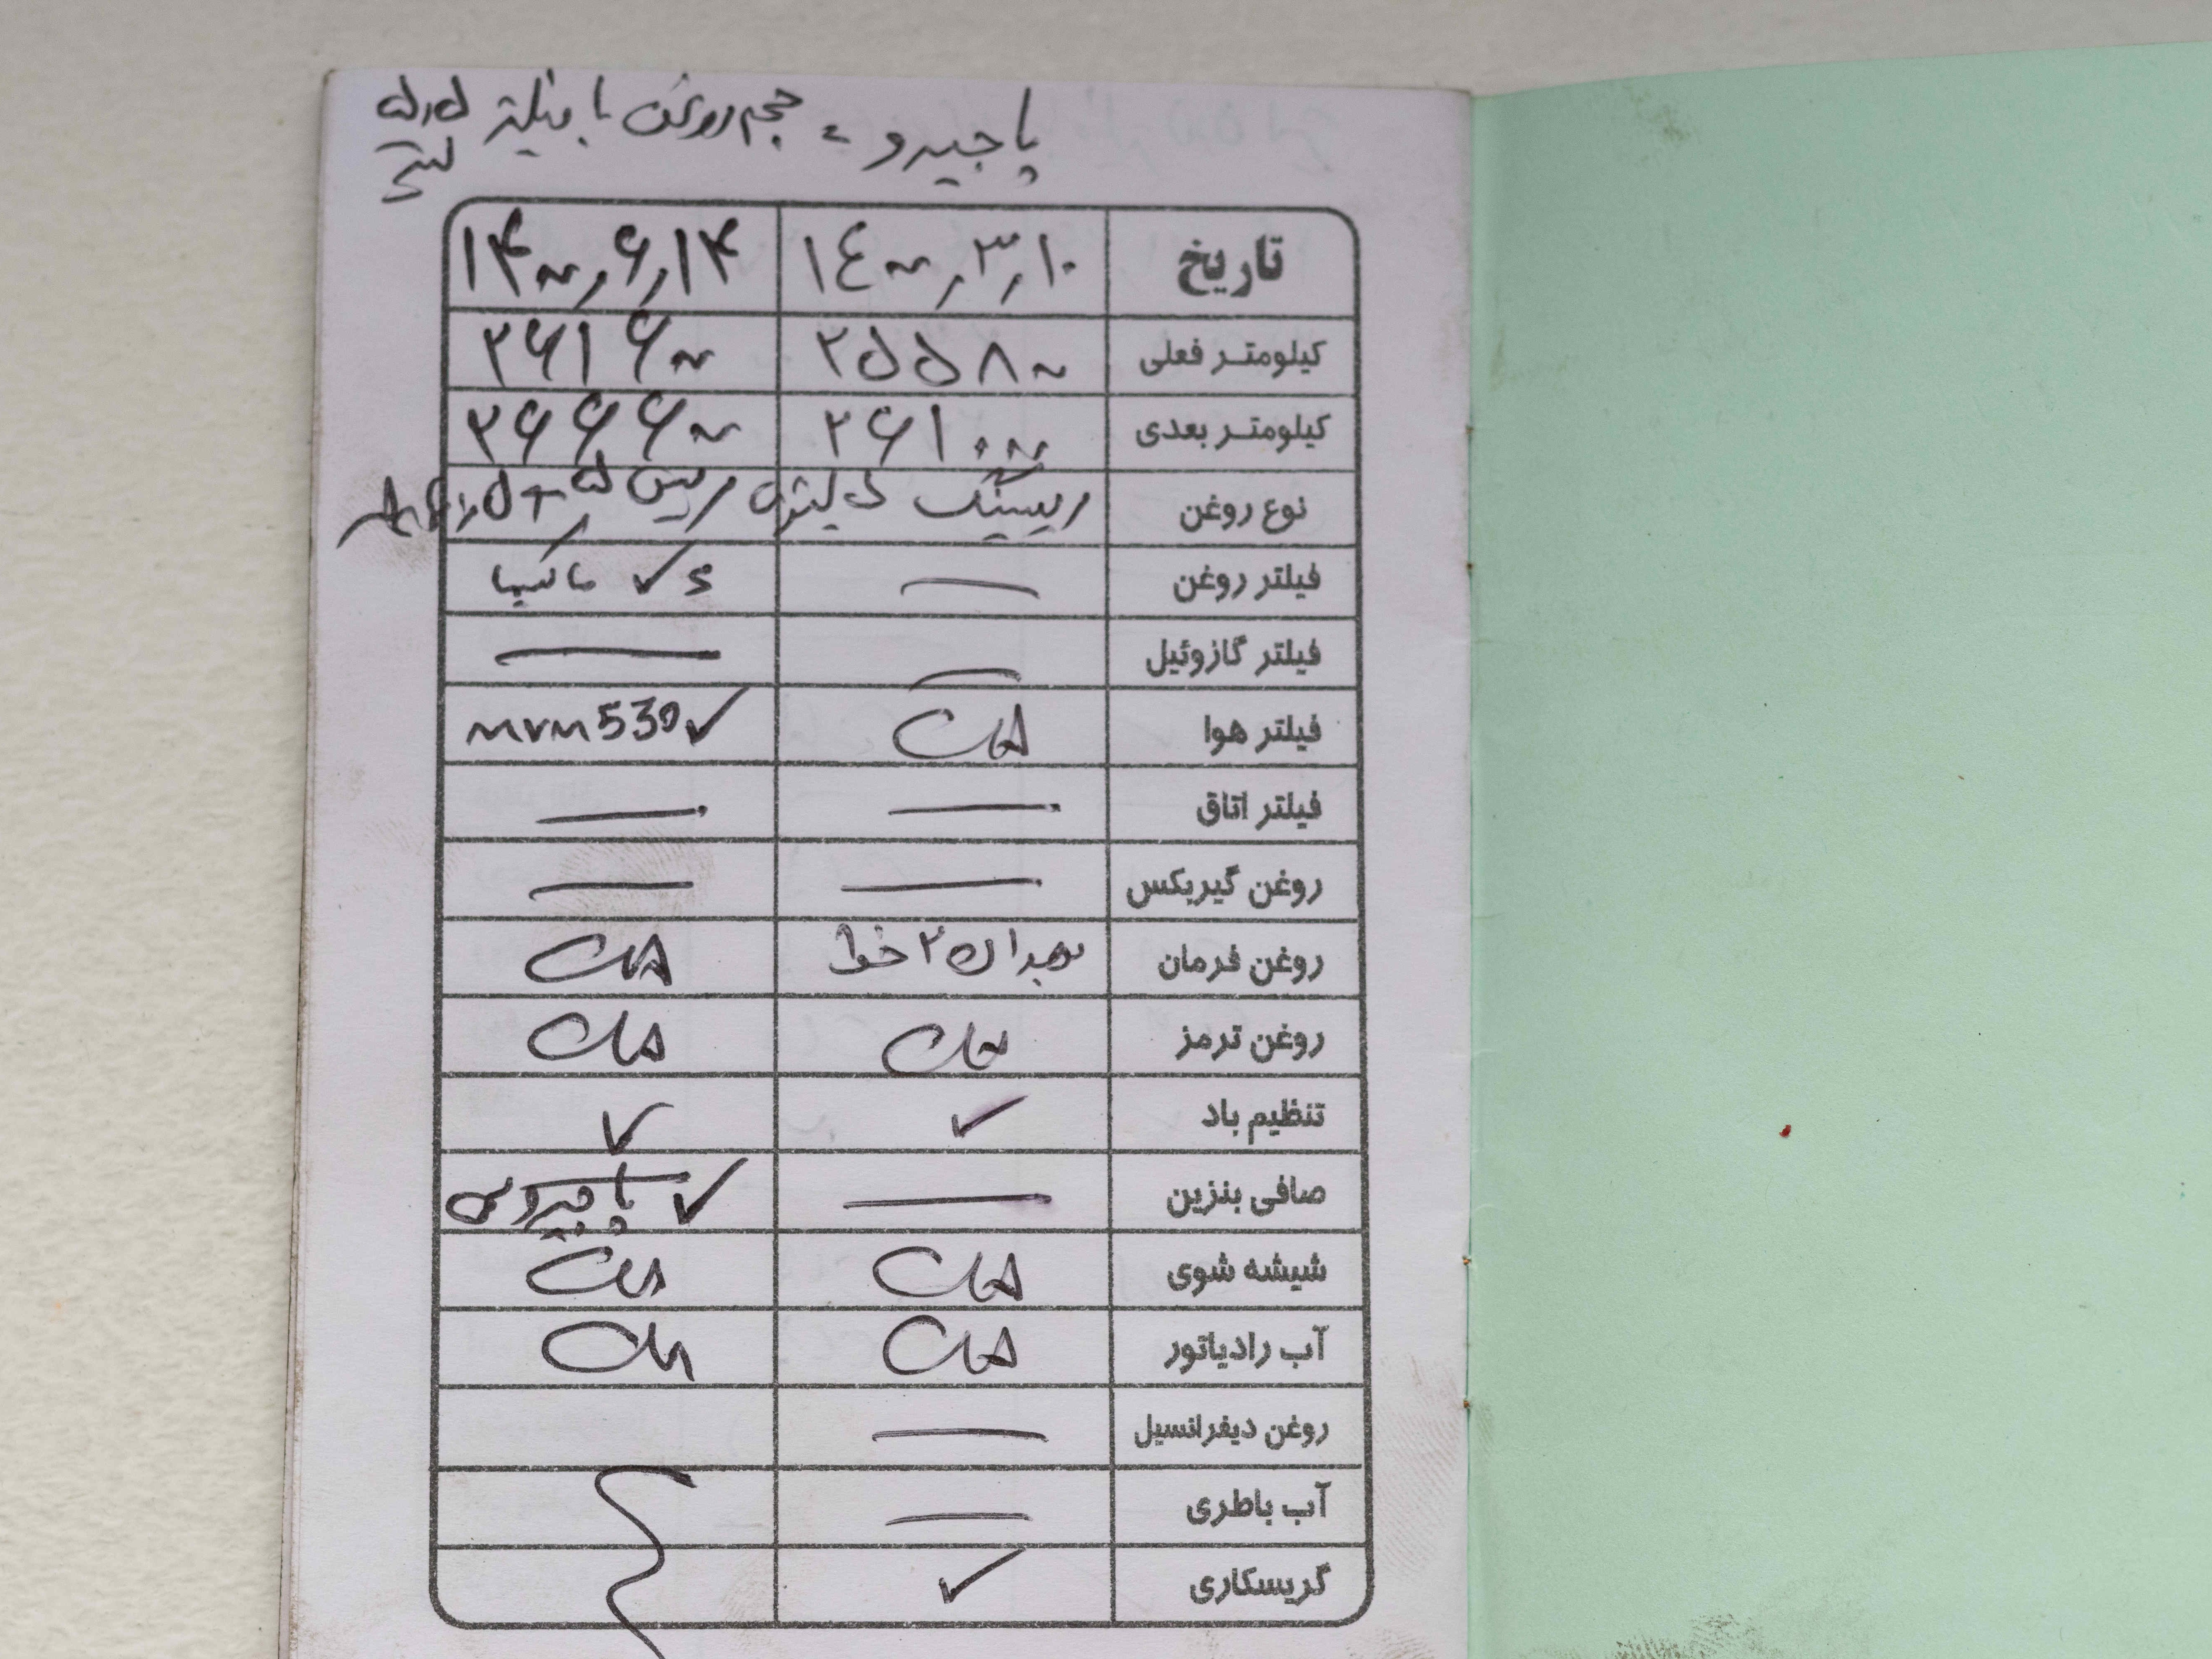 پاجیرو = حجم روغن با فیلتر ۵٫۵ لیتر
تاریخ ۱۴۰۰٫۳٫۱۰ ۱۴۰۰٫۶٫۱۴
کیلومتر فعلی ۲۵۵۸۰۰ ۲۶۱۶۰۰
کیلومتر بعدی ۲۶۱۰۰۰ ۲۶۶۶۰۰
نوع روغن
فیلتر روغن — ✓
فیلتر گازوئیل — —
فیلتر هوا چک mvm530✓
فیلتر اتاق — —
روغن گیربکس — —
روغن فرمان بهران ۲ خط چک
روغن ترمز چک چک
تنظیم باد ✓ ✓
صافی بنزین — ✓ پاجیرویی
شیشه شوی چک چک
آب رادیاتور چک چک
روغن دیفرانسیل —
آب باطری —
گریسکاری ✓